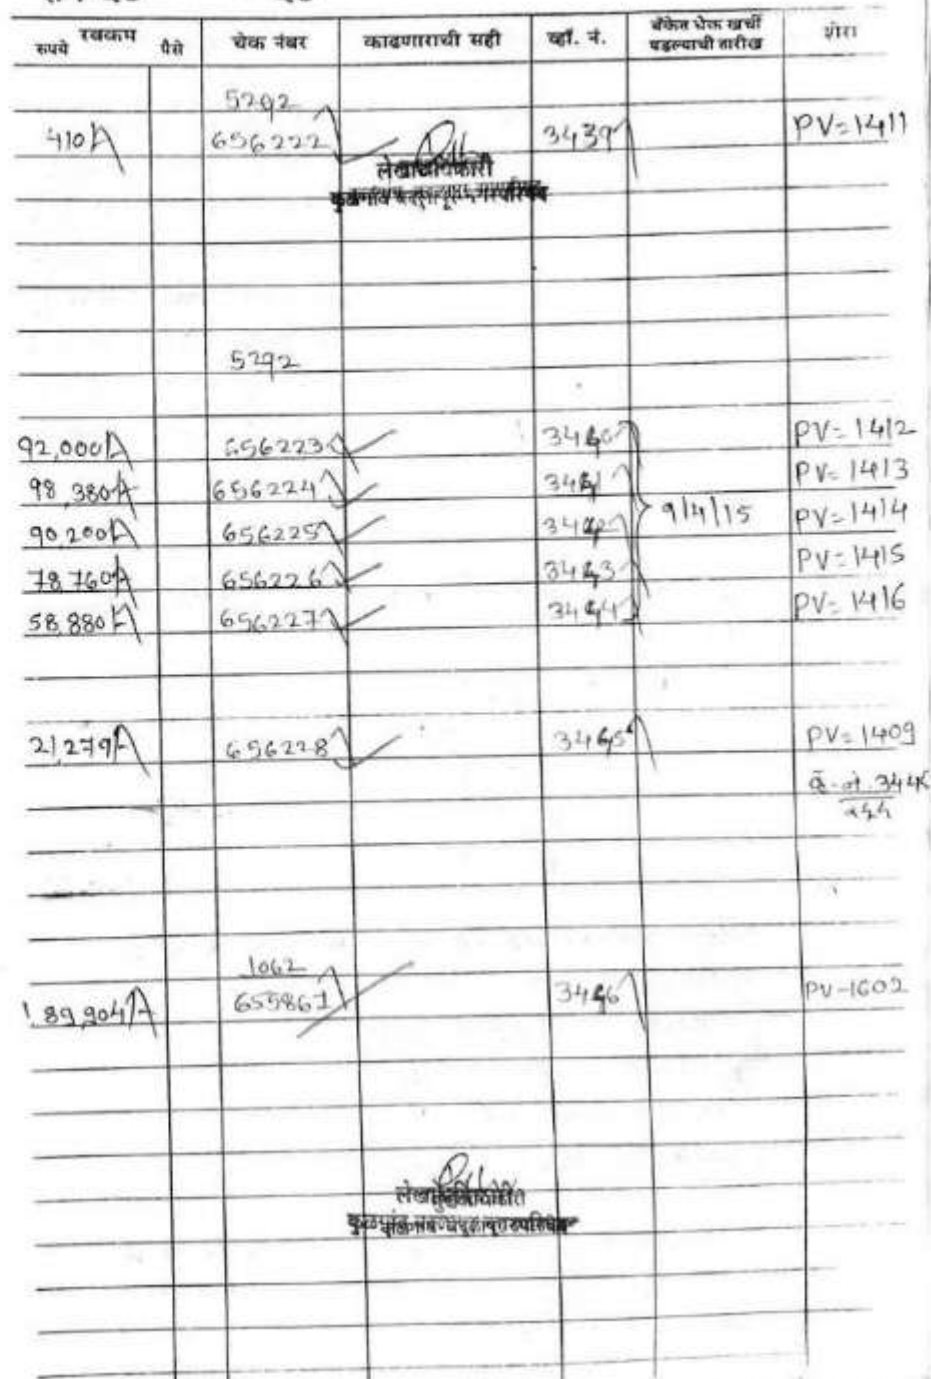 रक्कम
रुपये पैसे चेक नंबर काढणाराची सही व्हॉ. नं. बँकेत चेक खर्ची पडल्याची तारीख शेरा
5292
410/- 656222 3439 PV=1411
लेखाधिकारी
5292
92,000/- 656223 3440 PV=1412
98,380/- 656224 3441 PV=1413
90,200/- 656225 3442 9/4/15 PV=1414
78,760/- 656226 3443 PV=1415
58,880/- 656227 3444 PV=1416
21,279/- 656228 3445 PV=1409
1062
1,89,904/- 655861 3446 PV-1602